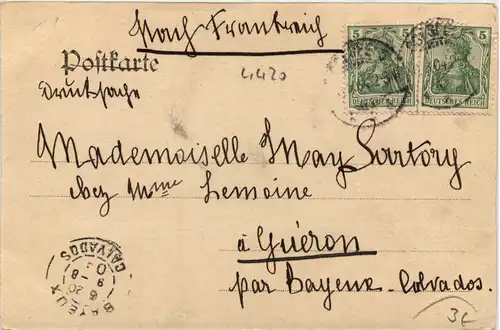 Nach Frankreich
5 5
DEUTSCHES REICH DEUTSCHES REICH
Postkarte
4420
Drucksache
Mademoiselle May Sartory
chez Mme Lemoine
à Guéron
par Bayeux - Calvados.
BAYEUX
CALVADOS
3€